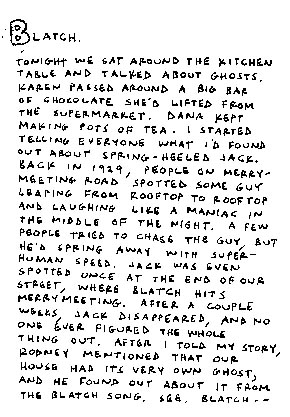 BLATCH.
TONIGHT WE SAT AROUND THE KITCHEN
TABLE AND TALKED ABOUT GHOSTS.
KAREN PASSED AROUND A BIG BAR
OF CHOCOLATE SHE'D LIFTED FROM
THE SUPERMARKET. DANA KEPT
MAKING POTS OF TEA. I STARTED
TELLING EVERYONE WHAT I'D FOUND
OUT ABOUT SPRING-HEELED JACK.
BACK IN 1929, PEOPLE ON MERRY-
MEETING ROAD SPOTTED SOME GUY
LEAPING FROM ROOFTOP TO ROOFTOP
AND LAUGHING LIKE A MANIAC IN
THE MIDDLE OF THE NIGHT. A FEW
PEOPLE TRIED TO CHASE THE GUY, BUT
HE'D SPRING AWAY WITH SUPER-
HUMAN SPEED. JACK WAS EVEN
SPOTTED ONCE AT THE END OF OUR
STREET, WHERE BLATCH HITS
MERRYMEETING. AFTER A COUPLE
WEEKS, JACK DISAPPEARED, AND NO
ONE EVER FIGURED THE WHOLE
THING OUT. AFTER I TOLD MY STORY,
RODNEY MENTIONED THAT OUR
HOUSE HAD ITS VERY OWN GHOST,
AND HE FOUND OUT ABOUT IT FROM
THE BLATCH SONG. SEE, BLATCH--